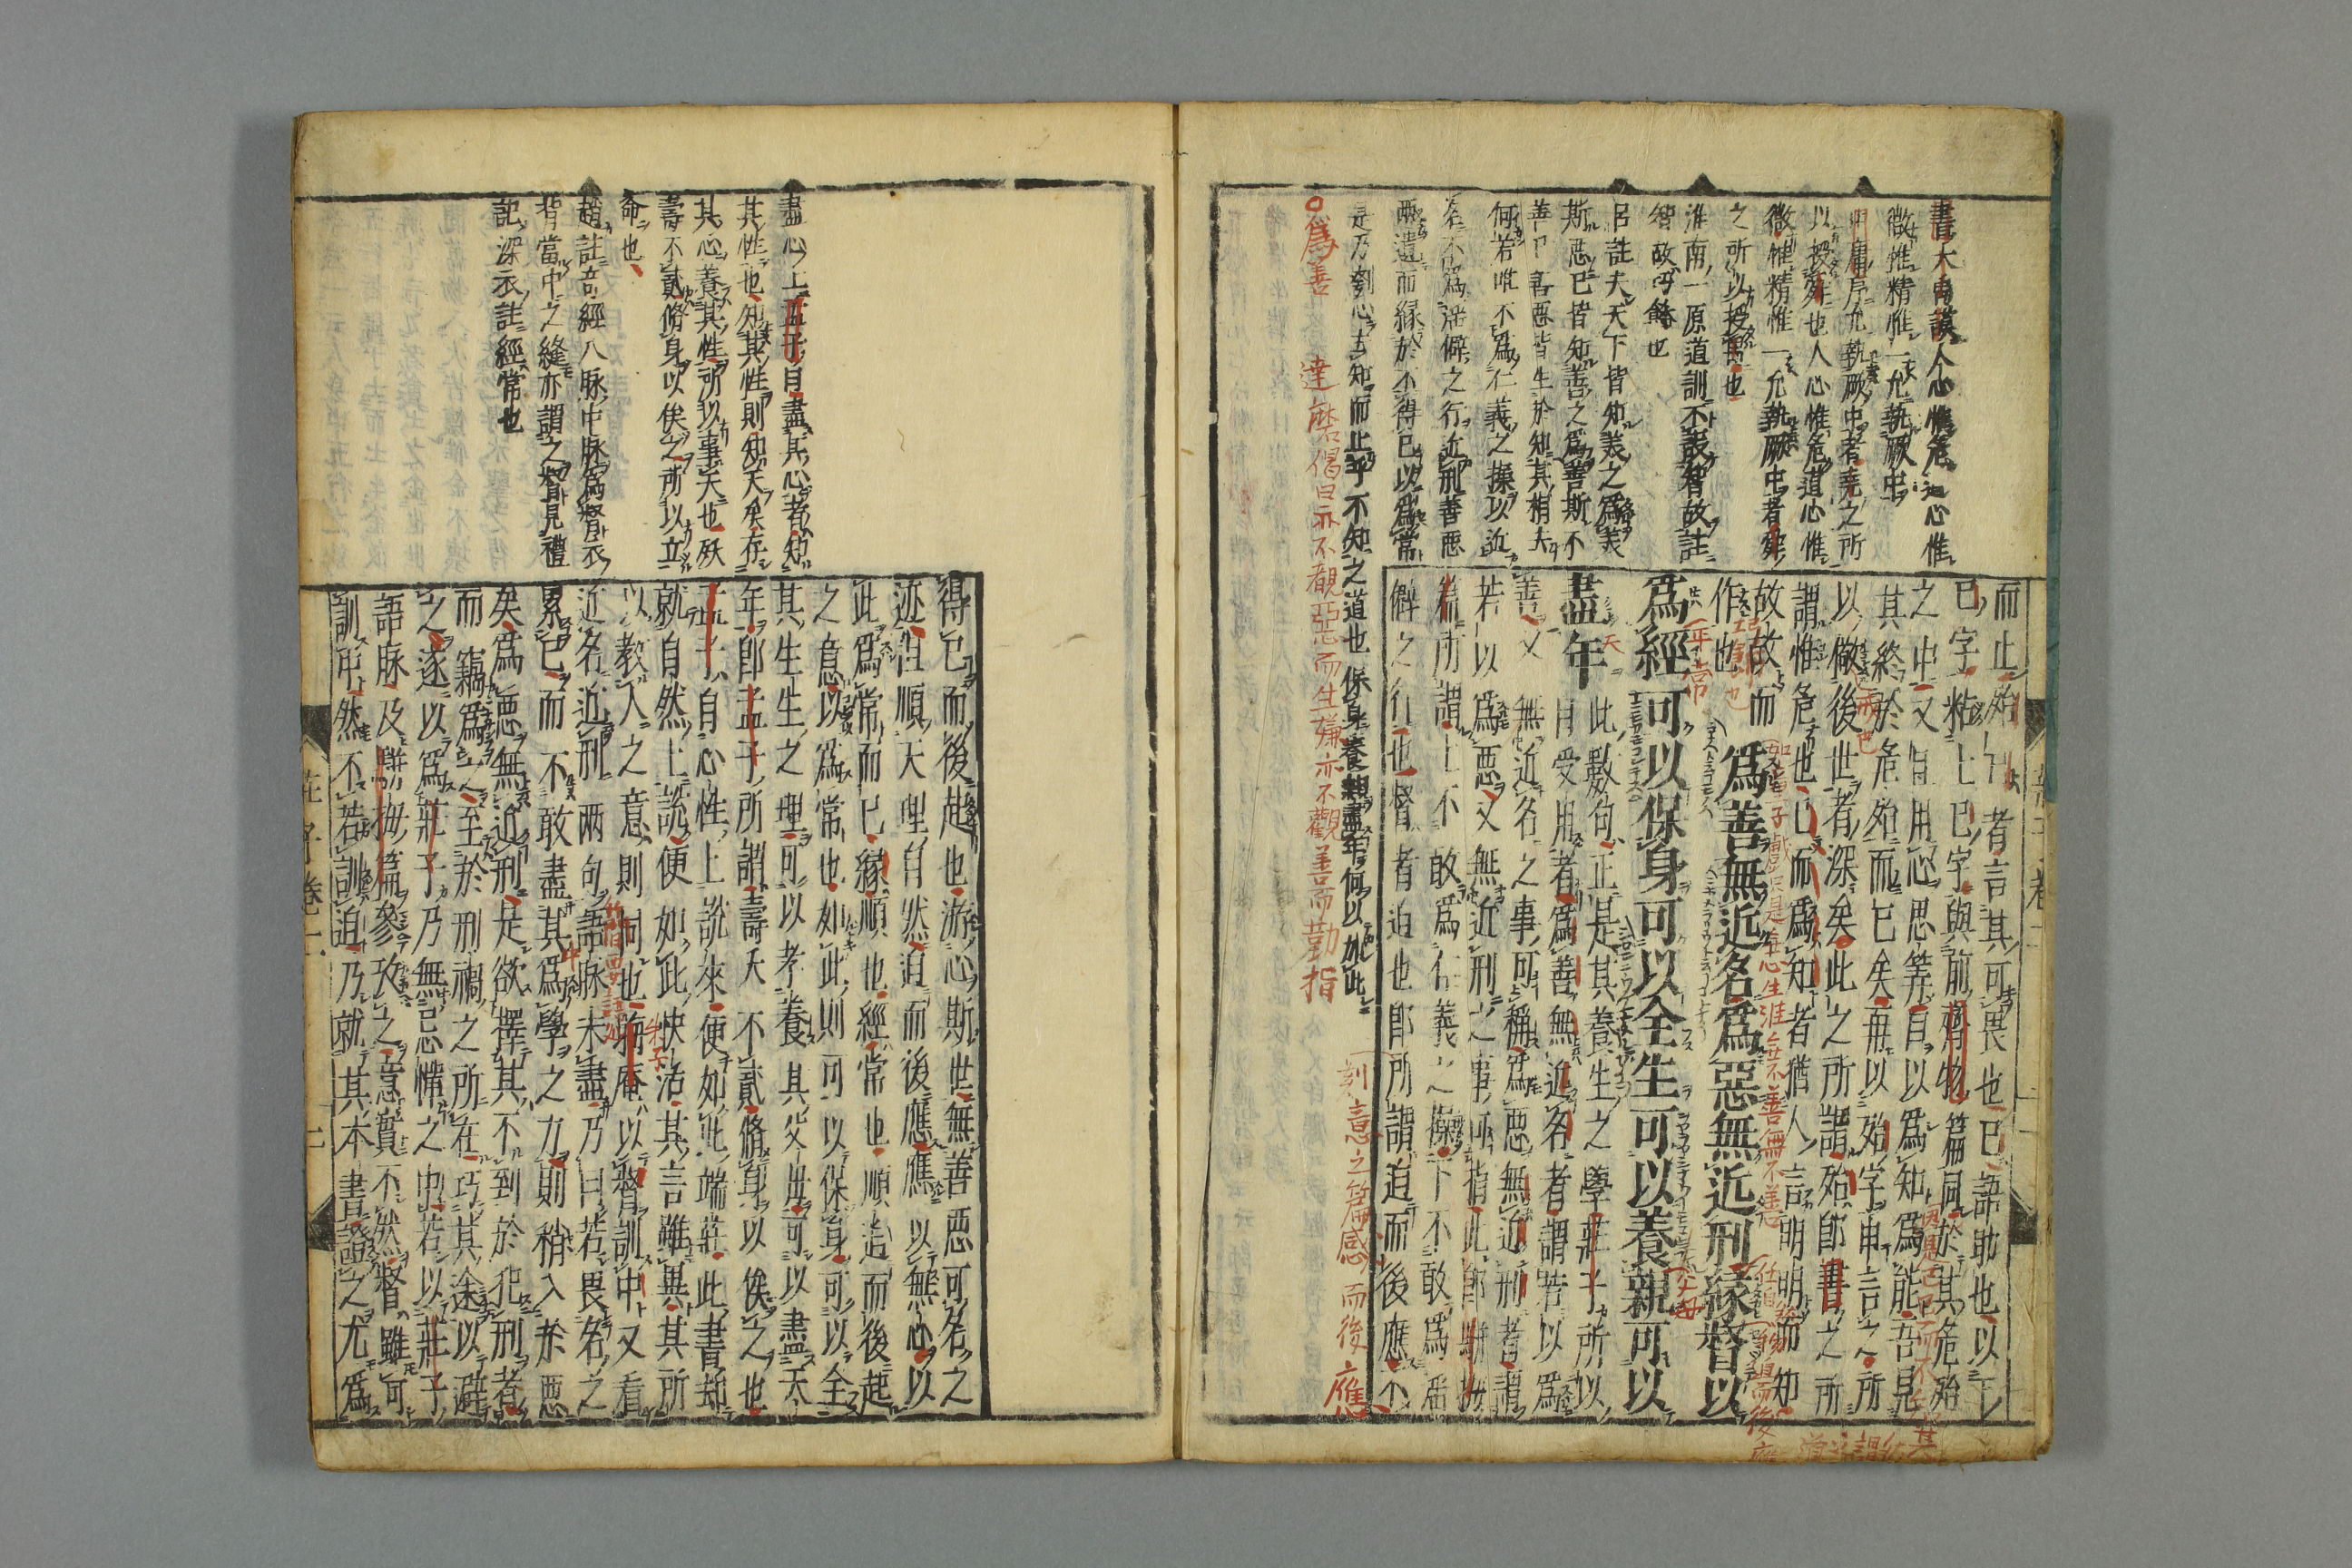 書大禹謨人心惟危道心惟
微惟精惟一允執厥中
中庸序允執厥中者堯之所
以授舜也人心惟危道心惟
微惟精惟一允執厥中者舜
之所以授禹也
淮南一原道訓不設智故註
智故巧飾也
呂註夫天下皆知美之為美
斯惡已皆知善之為善斯不
善已善惡皆生於知其相去
何若唯不為仁義之操以近
名不為淫僻之行近刑善惡
兩遺而緣於不得已以為常
是乃刳心去知而止乎不知之道也保身養親盡年何以加此
而止殆
者言其可畏也已語助也以下
已字粘上已字與前齊物篇同於其危殆
之中又用心思筭自以為知為能吾見
其終於危殆而已矣再以殆字申言之所
以儆後世者深矣此之所謂殆即書之所
謂惟危也已而為知者猶人言明明而知
故故而
作也
為善無近名為惡無近刑緣督以
為經可以保身可以全生可以養親可以
盡年
此數句正是其養生之學莊子所以
自受用者為善無近名者謂若以為
善又無近名之事可稱為惡無近刑者謂
若以為惡又無近刑之事可指此即駢拇
篇所謂上不敢為仁義之操下不敢為淫
僻之行也督者迫也即所謂迫而後應不
為善
達磨偈曰亦不覩惡而生嫌亦不觀善而勤指
刻意之篇感而後應
盡心上孟子曰盡其心者知
其性也知其性則知天矣存
其心養其性所以事天也殀
壽不貳脩身以俟之所以立
命也
趙註奇經八脉中脉為督衣
背當中之縫亦謂之督見禮
記深衣註經常也
得已而後起也游心斯世無善惡可名之
迹但順天理自然迫而後應應以無心以
此為常而已緣順也經常也順迫而後起
之意以為常也如此則可以保身可以全
其生生之理可以孝養其父母可以盡天
年即孟子所謂壽夭不貳脩身以俟之也
孟子自心性上說來便如此端莊此書却
就自然上說便如此快活其言雖異其所
以教人之意則同也晦庵以督訓中又看
近名近刑兩句語脉未盡乃曰若畏名之
累已而不敢盡其為學之力則稍入於惡
矣為惡無近刑是欲擇其不到於犯刑者
而竊為之至於刑禍之所在巧其途以避
之遂以為莊子乃無忌憚之中若以莊子
語脉及駢拇篇參攷之意實不然督雖可
訓中然不若訓迫乃就其本書證之尤為
莊子卷二
二